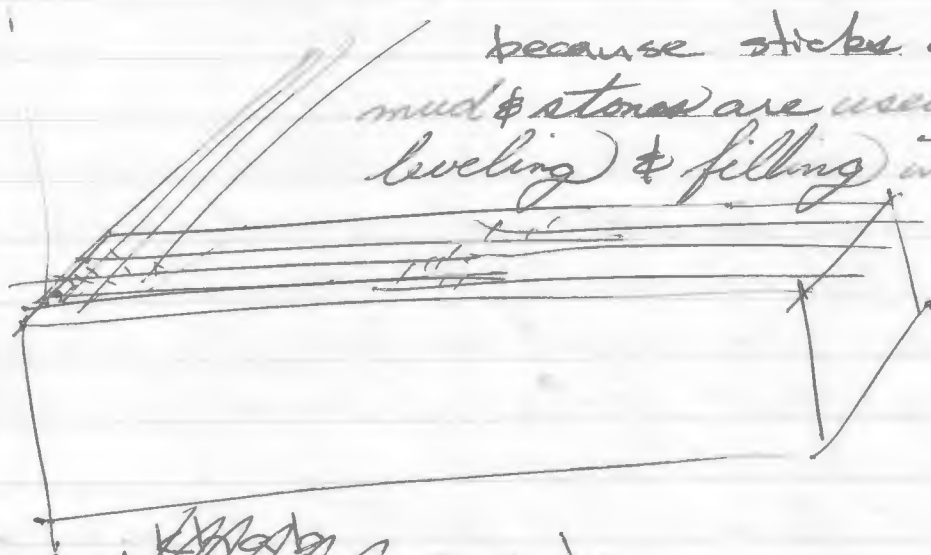 because sticks
mud & stones are use
leveling & filling in